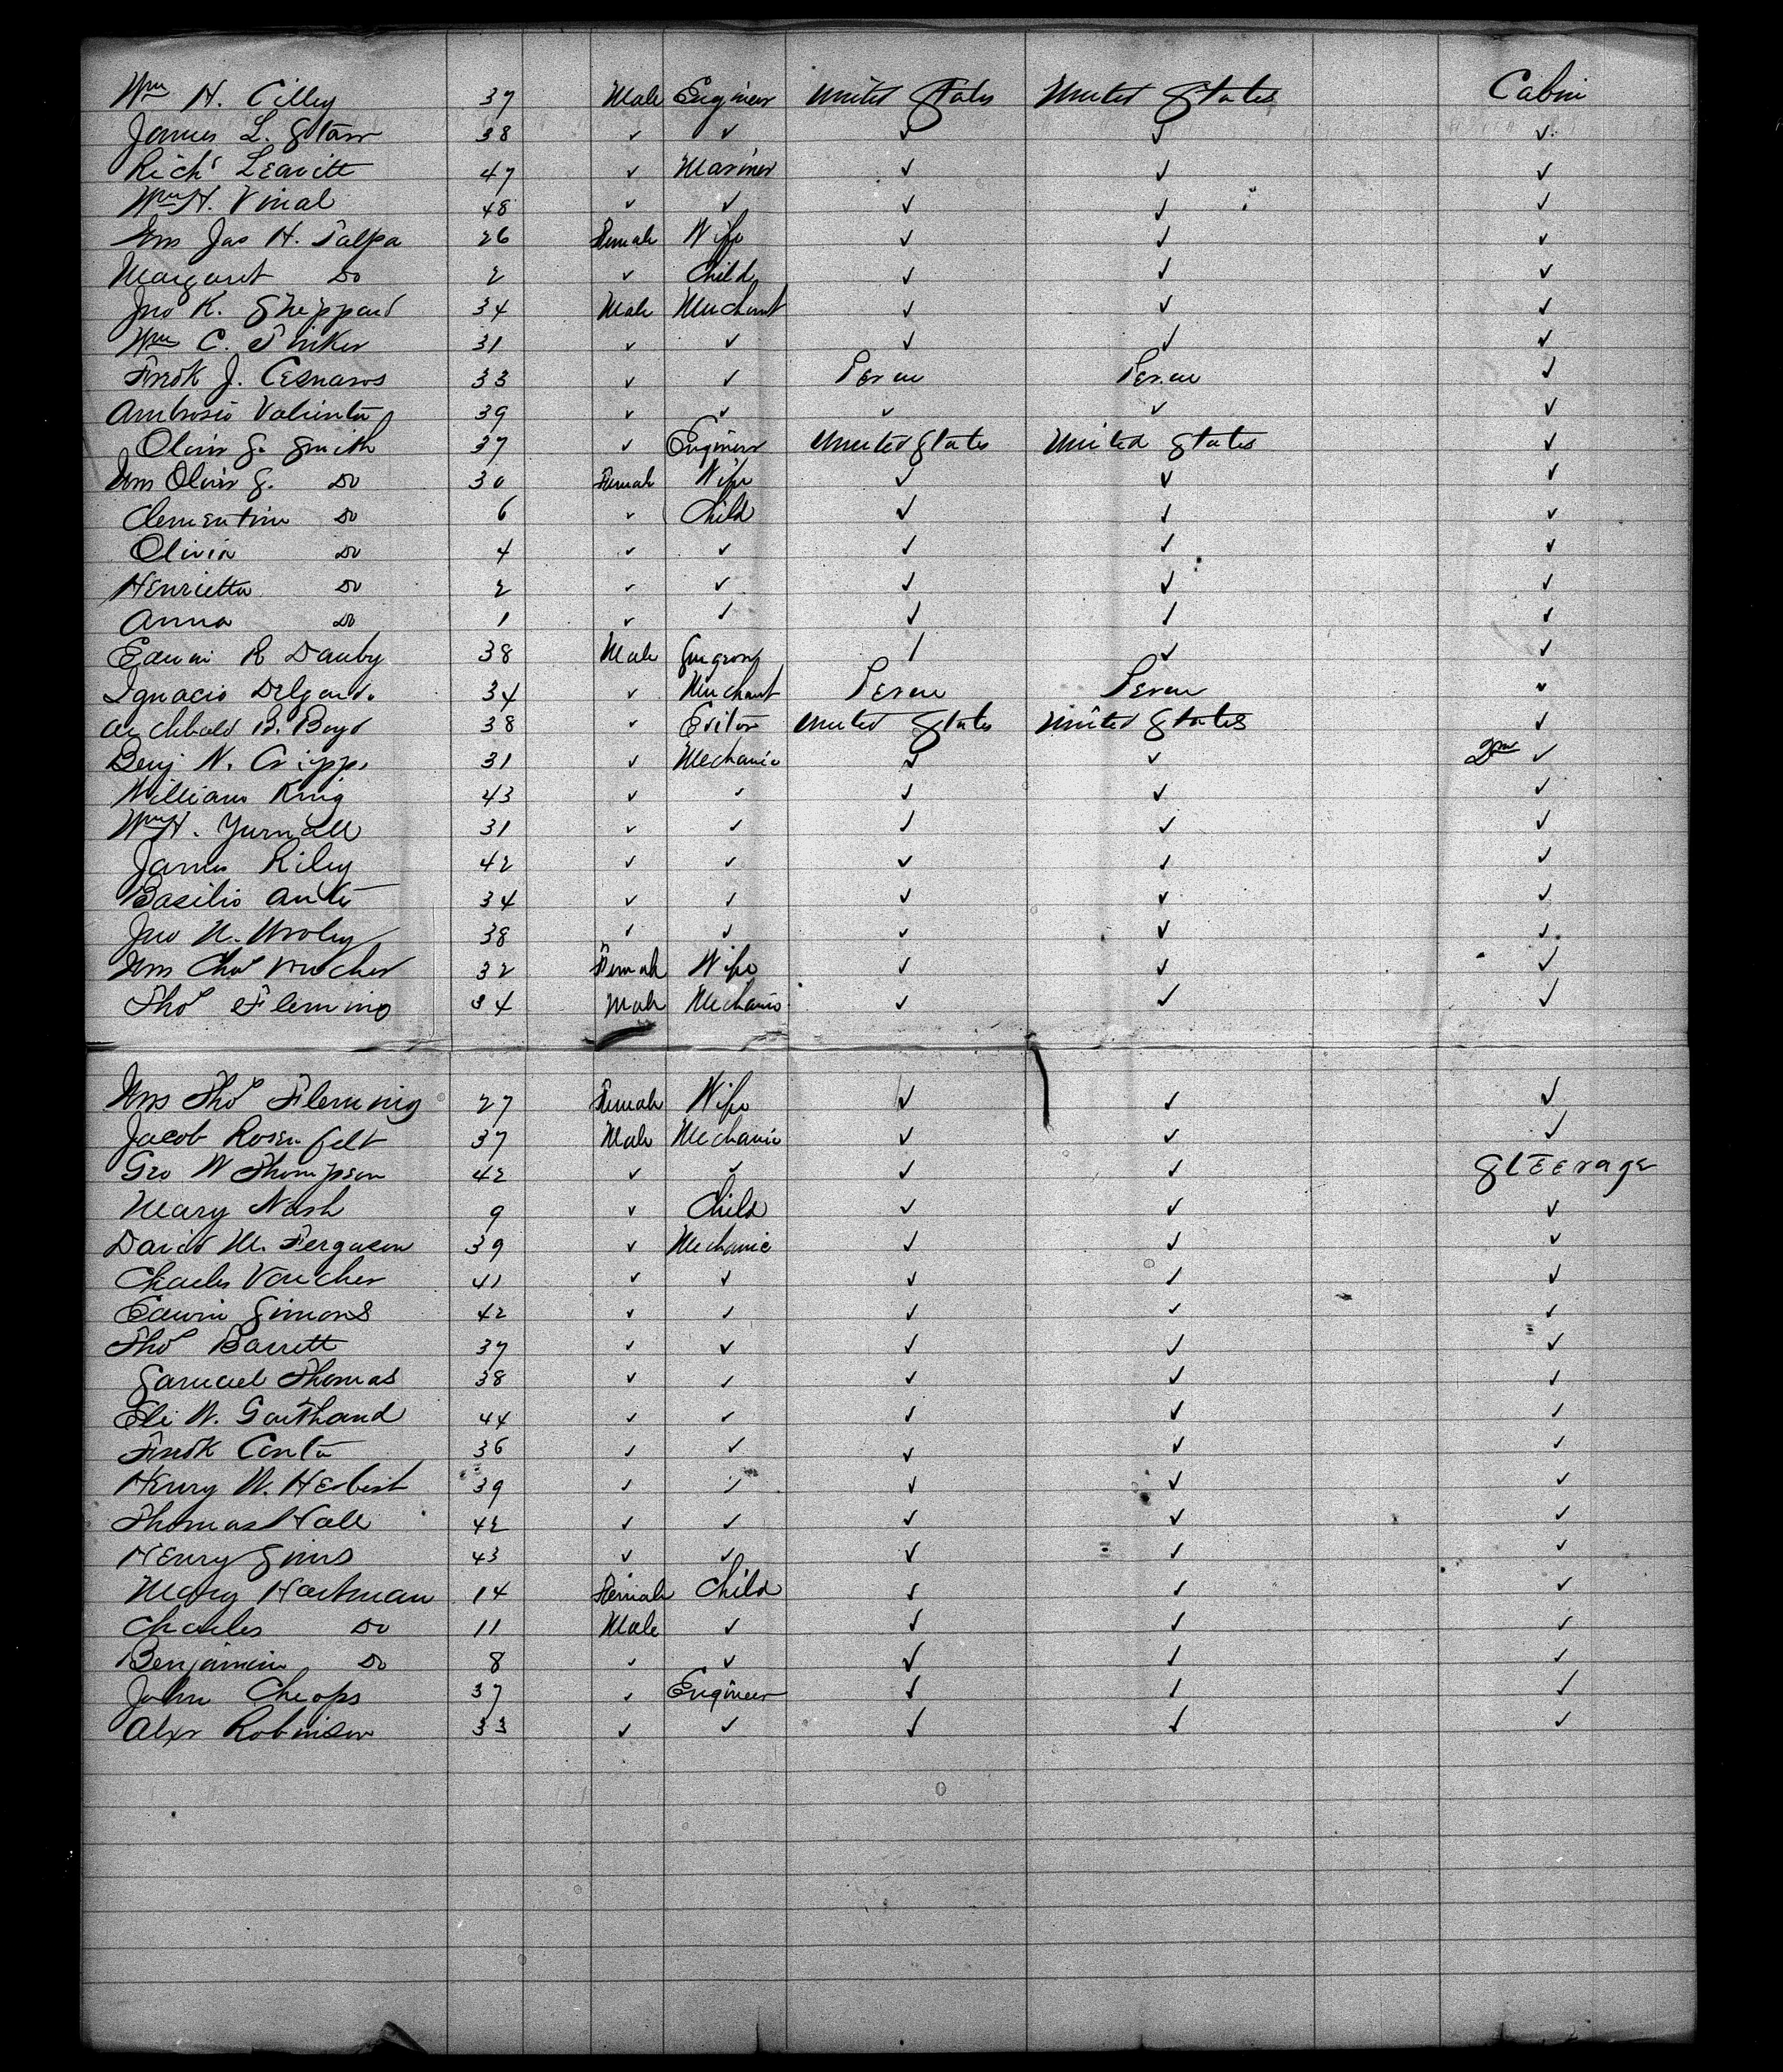 Wm H. Cilley 37 Male Engineer United States United States Cabin
James L. Starr 38 ✓ ✓ ✓ ✓ ✓
Richd Leavitt 47 ✓ Mariner ✓ ✓ ✓
Wm H. Vinal 48 ✓ ✓ ✓ ✓ ✓
Mrs Jas H. Talpa 26 Female Wife ✓ ✓ ✓
Margaret Do 2 ✓ Child ✓ ✓ ✓
Jno K. Sheppard 34 Male Merchant ✓ ✓ ✓
Wm C. Tinker 31 ✓ ✓ ✓ ✓ ✓
Fredk J. 33 ✓ ✓ Peru Peru ✓
Ambrosio 39 ✓ ✓ ✓ ✓ ✓
Oliver S. Smith 37 ✓ Engineer United States United States ✓
Mrs Oliver S. Do 30 Female Wife ✓ ✓ ✓
Clementine Do 6 ✓ Child ✓ ✓ ✓
Olivia Do 4 ✓ ✓ ✓ ✓ ✓
Henrietta Do 2 ✓ ✓ ✓ ✓ ✓
Anna Do 1 ✓ ✓ ✓ ✓ ✓
Edwin R Danby 38 Male Surgeon ✓ ✓ ✓
Ignacio Delgardo 34 ✓ Merchant Peru Peru ✓
Archibald B. Boyd 38 ✓ Editor United States United States ✓
Benj N. Cripps 31 ✓ Mechanic ✓ ✓ ✓
William King 43 ✓ ✓ ✓ ✓ ✓
Wm H. Yurnall 31 ✓ ✓ ✓ ✓ ✓
James Riley 42 ✓ ✓ ✓ ✓ ✓
Basilio 34 ✓ ✓ ✓ ✓ ✓
Jno N. 38 ✓ ✓ ✓ ✓ ✓
Mrs Chas Voucher 32 Female Wife ✓ ✓ ✓
Thos Fleming 34 Male Mechanic ✓ ✓ ✓
Mrs Thos Fleming 27 Female Wife ✓ ✓ ✓
Jacob Rosenfelt 37 Male Mechanic ✓ ✓ ✓
Geo W Thompson 42 ✓ ✓ ✓ ✓ Steerage
Mary Nash 9 ✓ Child ✓ ✓ ✓
David M. Ferguson 39 ✓ Mechanic ✓ ✓ ✓
Charles Voucher 41 ✓ ✓ ✓ ✓ ✓
Edwin Simons 42 ✓ ✓ ✓ ✓ ✓
Thos Barrett 37 ✓ ✓ ✓ ✓ ✓
Samuel Thomas 38 ✓ ✓ ✓ ✓ ✓
Eli W. Gaithand 44 ✓ ✓ ✓ ✓ ✓
Fredk 36 ✓ ✓ ✓ ✓ ✓
Henry W. Herbert 39 ✓ ✓ ✓ ✓ ✓
Thomas Hall 42 ✓ ✓ ✓ ✓ ✓
Henry Sims 43 ✓ ✓ ✓ ✓ ✓
Mary Hartman 14 Female Child ✓ ✓ ✓
Charles Do 11 Male ✓ ✓ ✓ ✓
Benjamin Do 8 ✓ ✓ ✓ ✓ ✓
John Cheops 37 ✓ Engineer ✓ ✓ ✓
Alexr Robinson 33 ✓ ✓ ✓ ✓ ✓